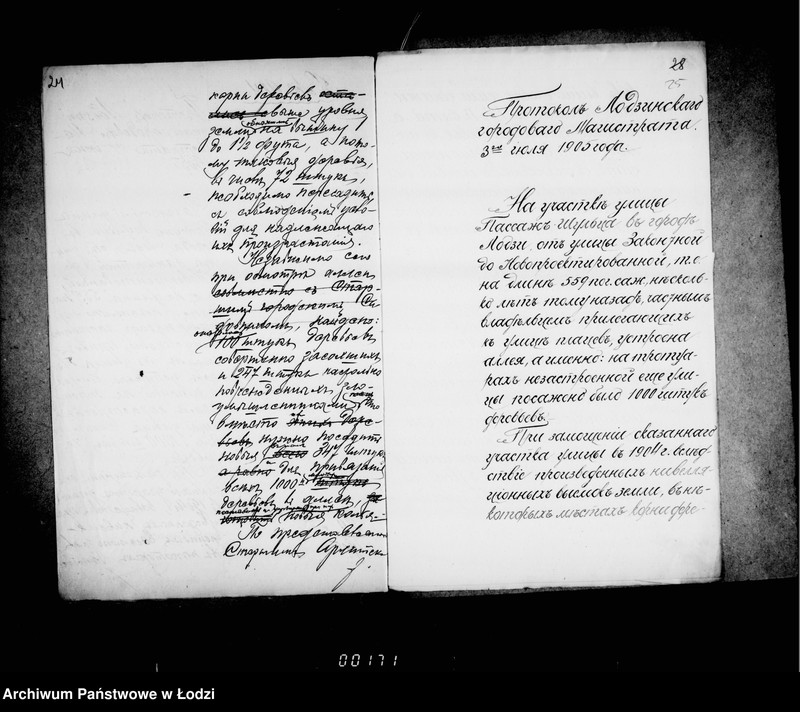 24
корни деревьевъ
выше уровня
земли на вышину
до 1½ фута, а пото-
му таковыя деревья,
въ числѣ 72 штукъ,
необходимо пересадить
съ соблюденіемъ усло-
вій для надлежащаго
ихъ произрастанія.
Независимо сего
при осмотрѣ аллеи
совмѣстно съ Стар-
шимъ городскимъ Са-
довникомъ, найдено:
100 штукъ деревьевъ
совершенно засохшихъ
и 247 штукъ настолько
поврежденныхъ зло-
умышленниками что
вмѣсто
нужно посадить
новыя 347 штукъ
а равно для привязанія
всѣхъ 1000
деревьевъ
новыя колья.
По представленнымъ
Старшимъ Архитек-
28
25
Протоколъ Лодзинскаго
городоваго Магистрата.
3 іюля 1905 года.
На участкѣ улицы
Пассажъ Шульца въ городѣ
Лодзи, отъ улицы Законтной
до Новопроектированной, т. е.
на длинѣ 559 пог. саж., нѣсколь-
ко лѣтъ тому назадъ, частнымъ
владѣльцемъ прилегающихъ
къ улицѣ плацовъ, устроена
аллея, а именно: на тротуа-
рахъ незастроенной еще ули-
цы посажено было 1000 штукъ
деревьевъ.
При замощеніи сказаннаго
участка улицы въ 1904 г. вслѣд-
ствіе произведенныхъ нивелля-
ціонныхъ выемокъ земли, въ нѣ-
которыхъ мѣстахъ корни дере-
00171
Archiwum Państwowe w Łodzi